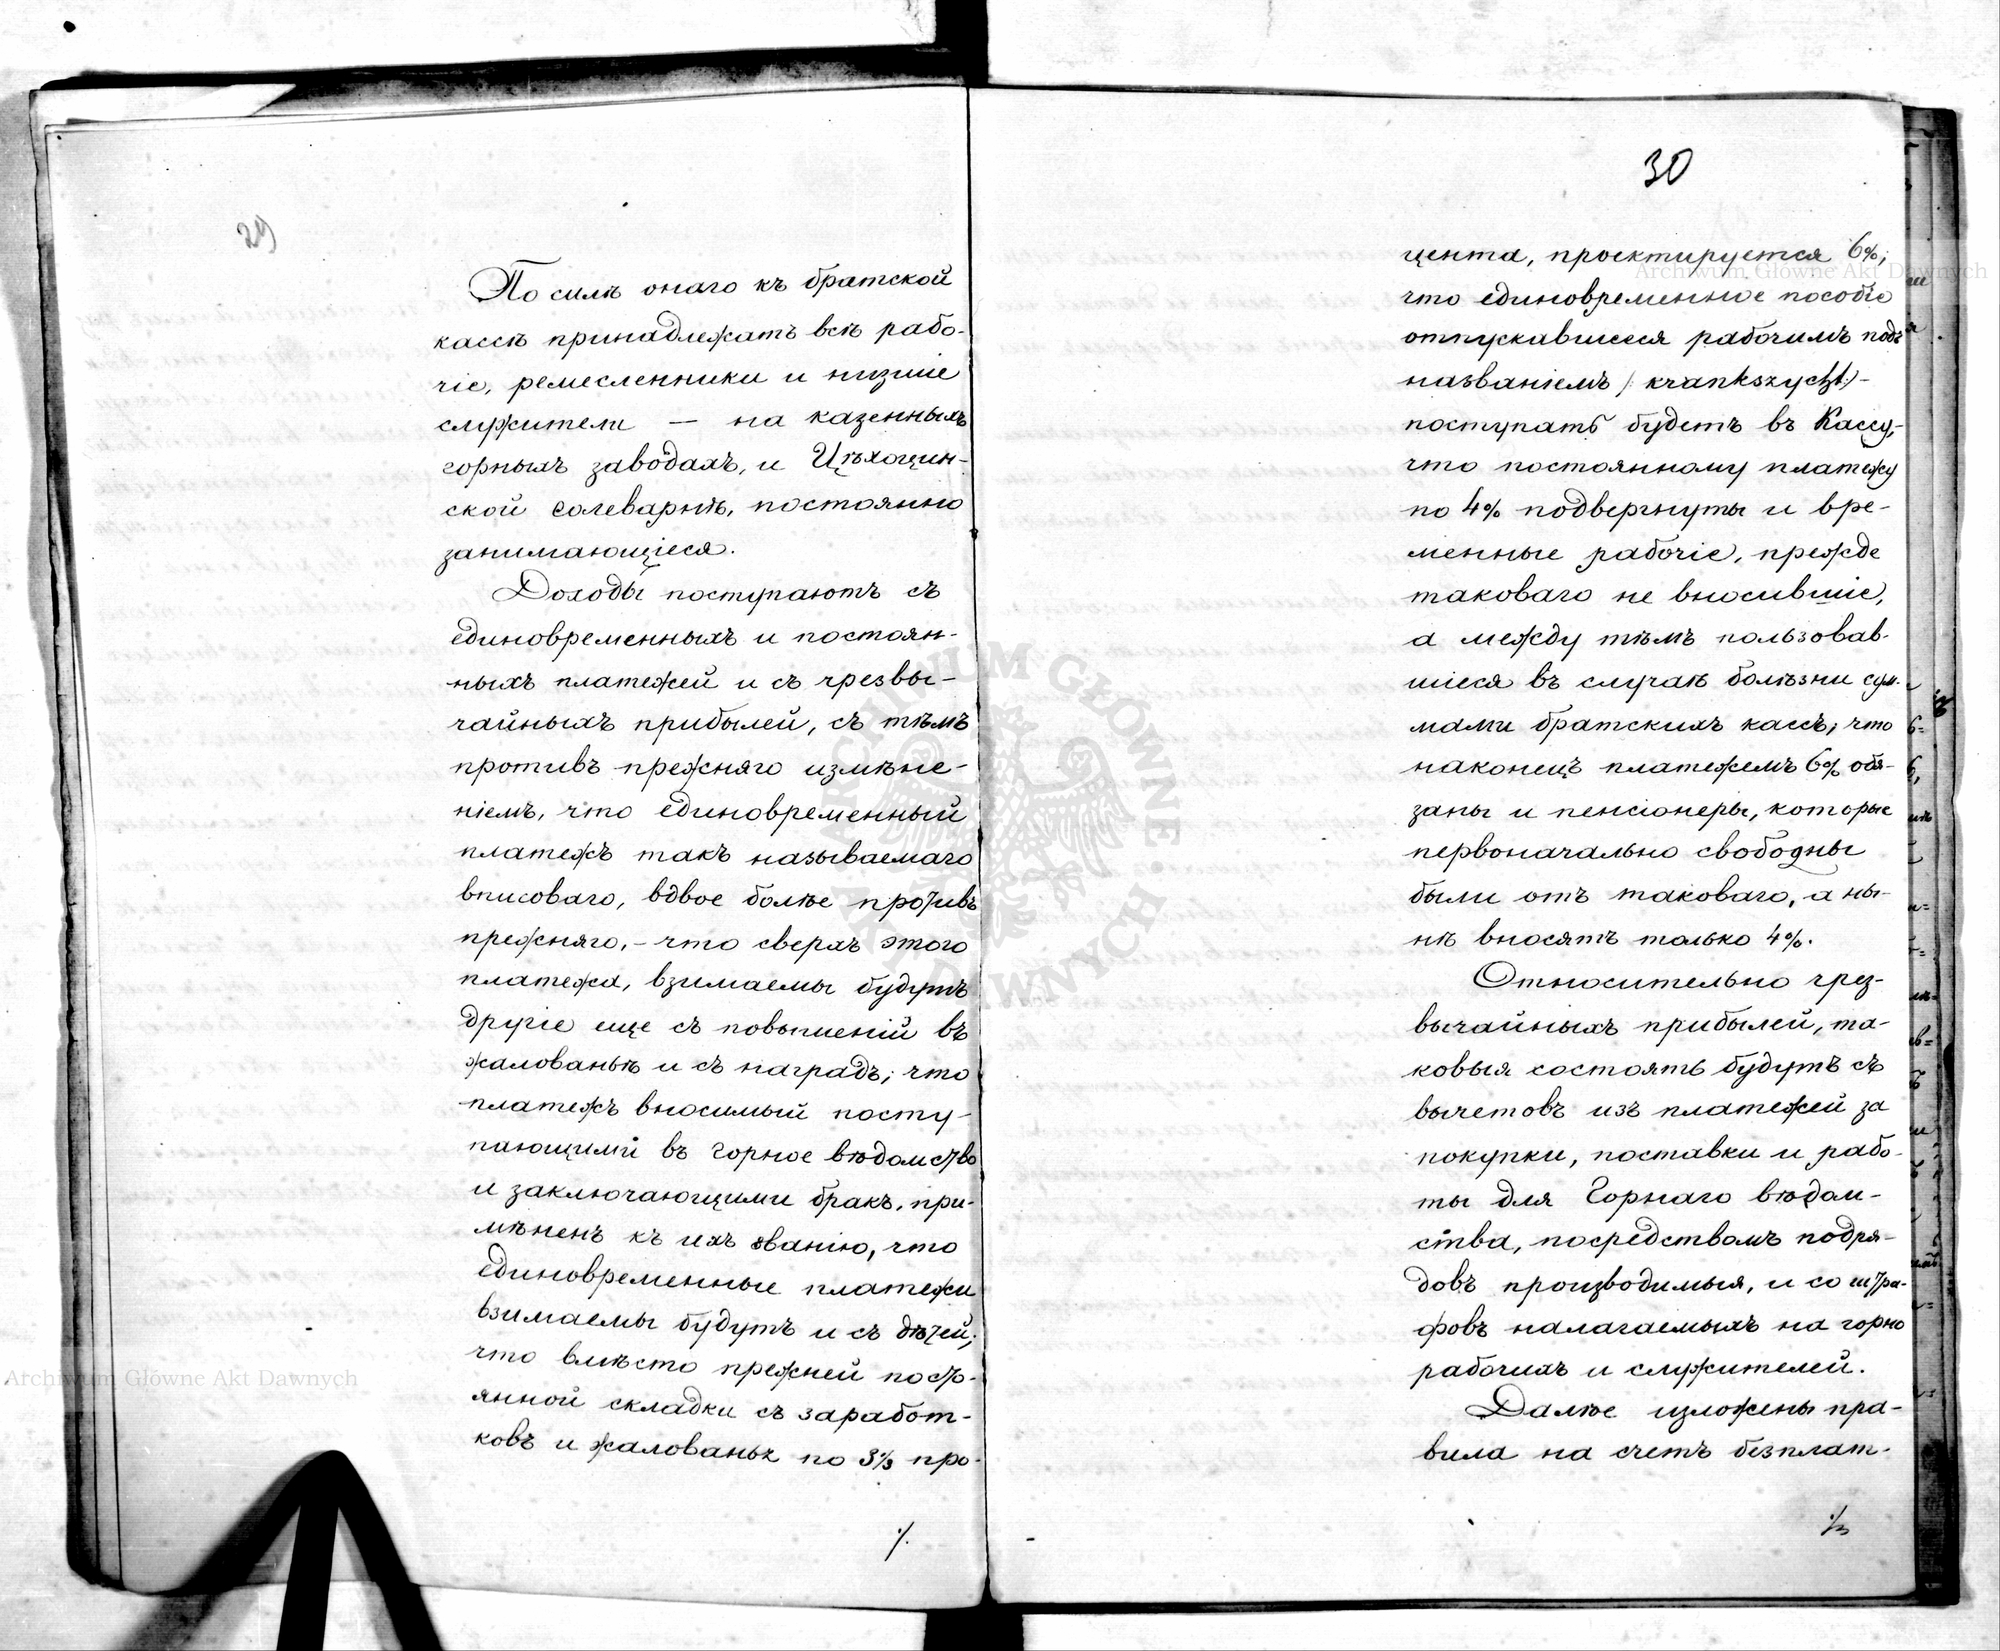 29
По силѣ онаго къ братской
кассѣ принадлежатъ всѣ рабо-
чіе, ремесленники и низшіе
служители — на казенныхъ
горныхъ заводахъ, и Цѣхоцин-
ской солеварнѣ, постоянно
занимающіеся.
Доходы поступаютъ съ
единовременныхъ и постоян-
ныхъ платежей и съ чрезвы-
чайныхъ прибылей, съ тѣмъ
противъ прежняго измѣне-
ніемъ, что единовременный
платежъ такъ называемаго
вписоваго, вдвое болѣе противъ
прежняго, - что сверхъ этого
платежа, взимаемы будутъ
другіе еще съ повышеній въ
жалованьѣ и съ наградъ; что
платежъ вносимый посту-
пающими въ горное вѣдомство
и заключающими бракъ, при-
мѣненъ къ ихъ званію, что
единовременные платежи
взимаемы будутъ и съ дѣтей;
что вмѣсто прежней посто-
янной складки съ заработ-
ковъ и жалованья по 3⅓ про-
%
30
цента, проектируется 6%;
что единовременное пособіе
отпускавшееся рабочимъ подъ
названіемъ /: krankszycht :/ -
поступать будетъ въ Кассу,-
что постоянному платежу
по 4% подвергнуты и вре-
менные рабочіе, прежде
таковаго не вносившіе,
а между тѣмъ пользовав-
шіеся въ случаѣ болѣзни сум-
мами братскихъ кассъ; что
наконецъ платежемъ 6% обя-
заны и пенсіонеры, которые
первоначально свободны
были отъ таковаго, а ны-
нѣ вносятъ только 4%.
Относительно чрез-
вычайныхъ прибылей, та-
ковыя состоять будутъ съ
вычетовъ изъ платежей за
покупки, поставки и рабо-
ты для Горнаго вѣдом-
ства, посредствомъ подря-
довъ производимыя, и со штра-
фовъ налагаемыхъ на горно
рабочихъ и служителей.
Далѣе изложены пра-
вила на счетъ безплат-
Archiwum Główne Akt Dawnych
Archiwum Główne Akt Dawnych
ARCHIWUM GŁÓWNE AKT DAWNYCH